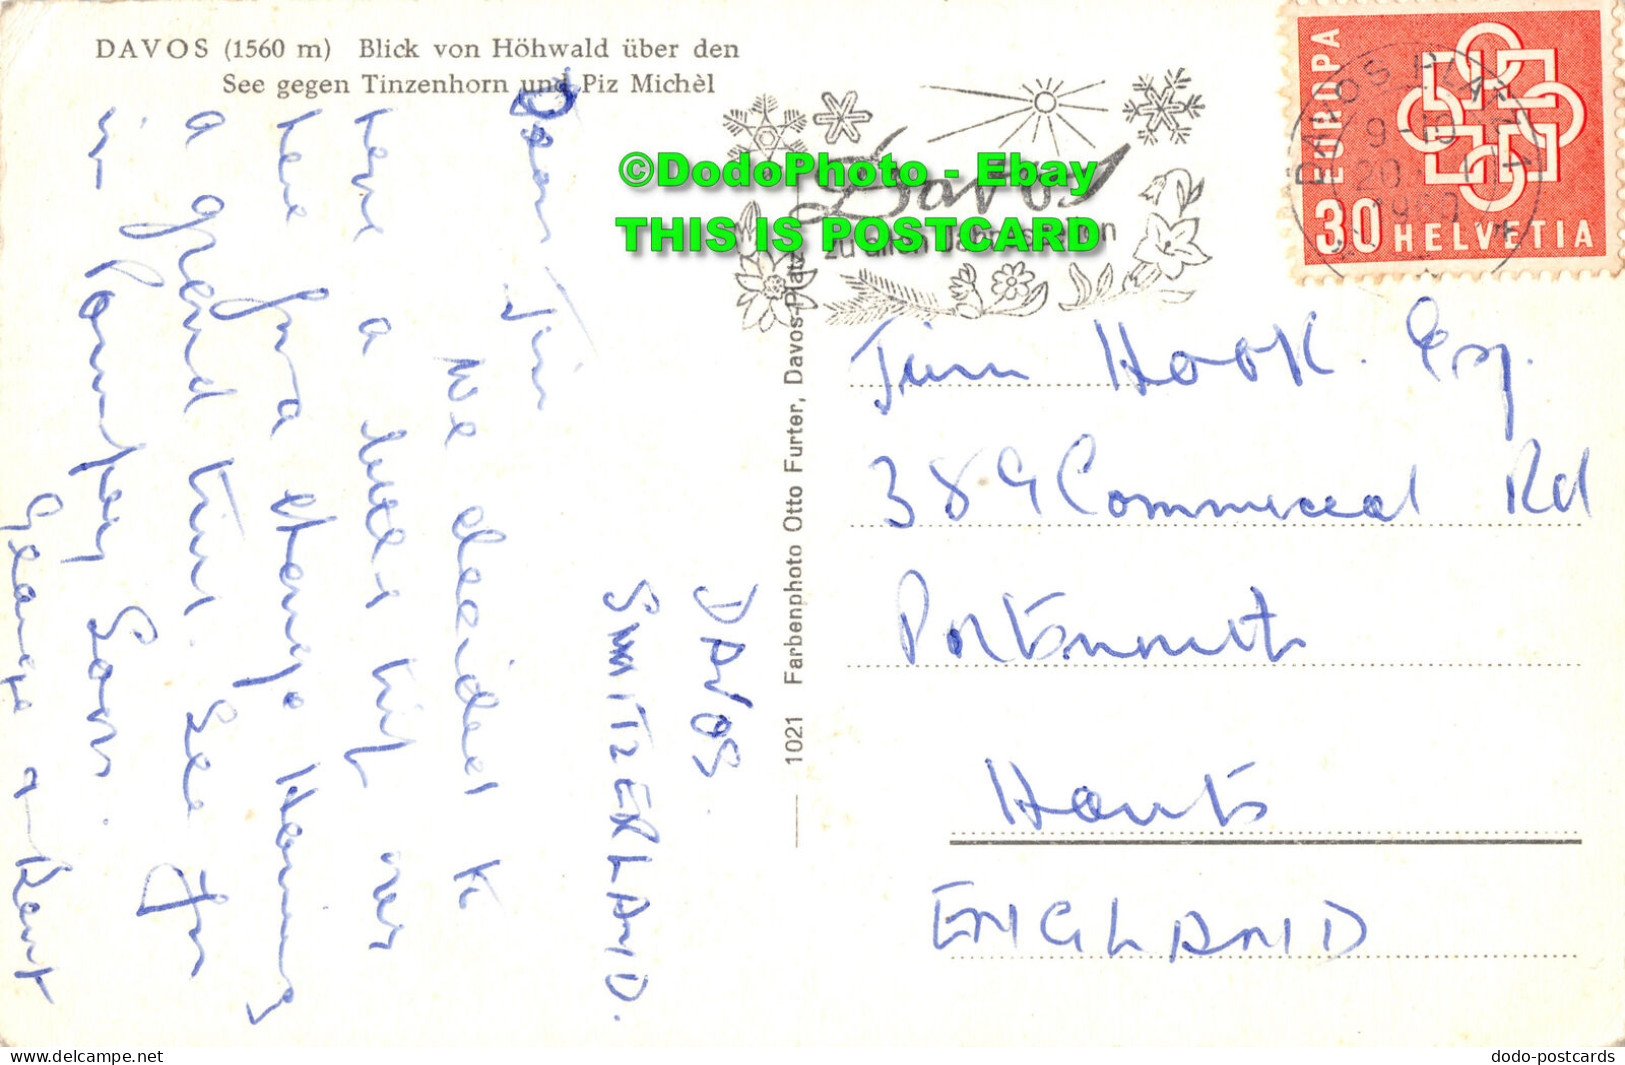 DAVOS (1560 m) Blick von Höhwald über den
See gegen Tinzenhorn und Piz Michèl
DAVOS.
SWITZERLAND.
Dear Jim
We decided to
have a trip over
here for a change. Having
a grand time. See you
in Pompey soon.
George
©DodoPhoto - Ebay
THIS IS POSTCARD
Davos
zu allen Jahreszeiten
1021 Farbenphoto Otto Furter, Davos-Platz
EUROPA
30 HELVETIA
DAVOS PLATZ 1
9-10
20
1960
Jim Hook. Esq.
389 Commercial Rd
Portsmouth
Hants
ENGLAND
https://www.delcampe.net
dodo-postcards